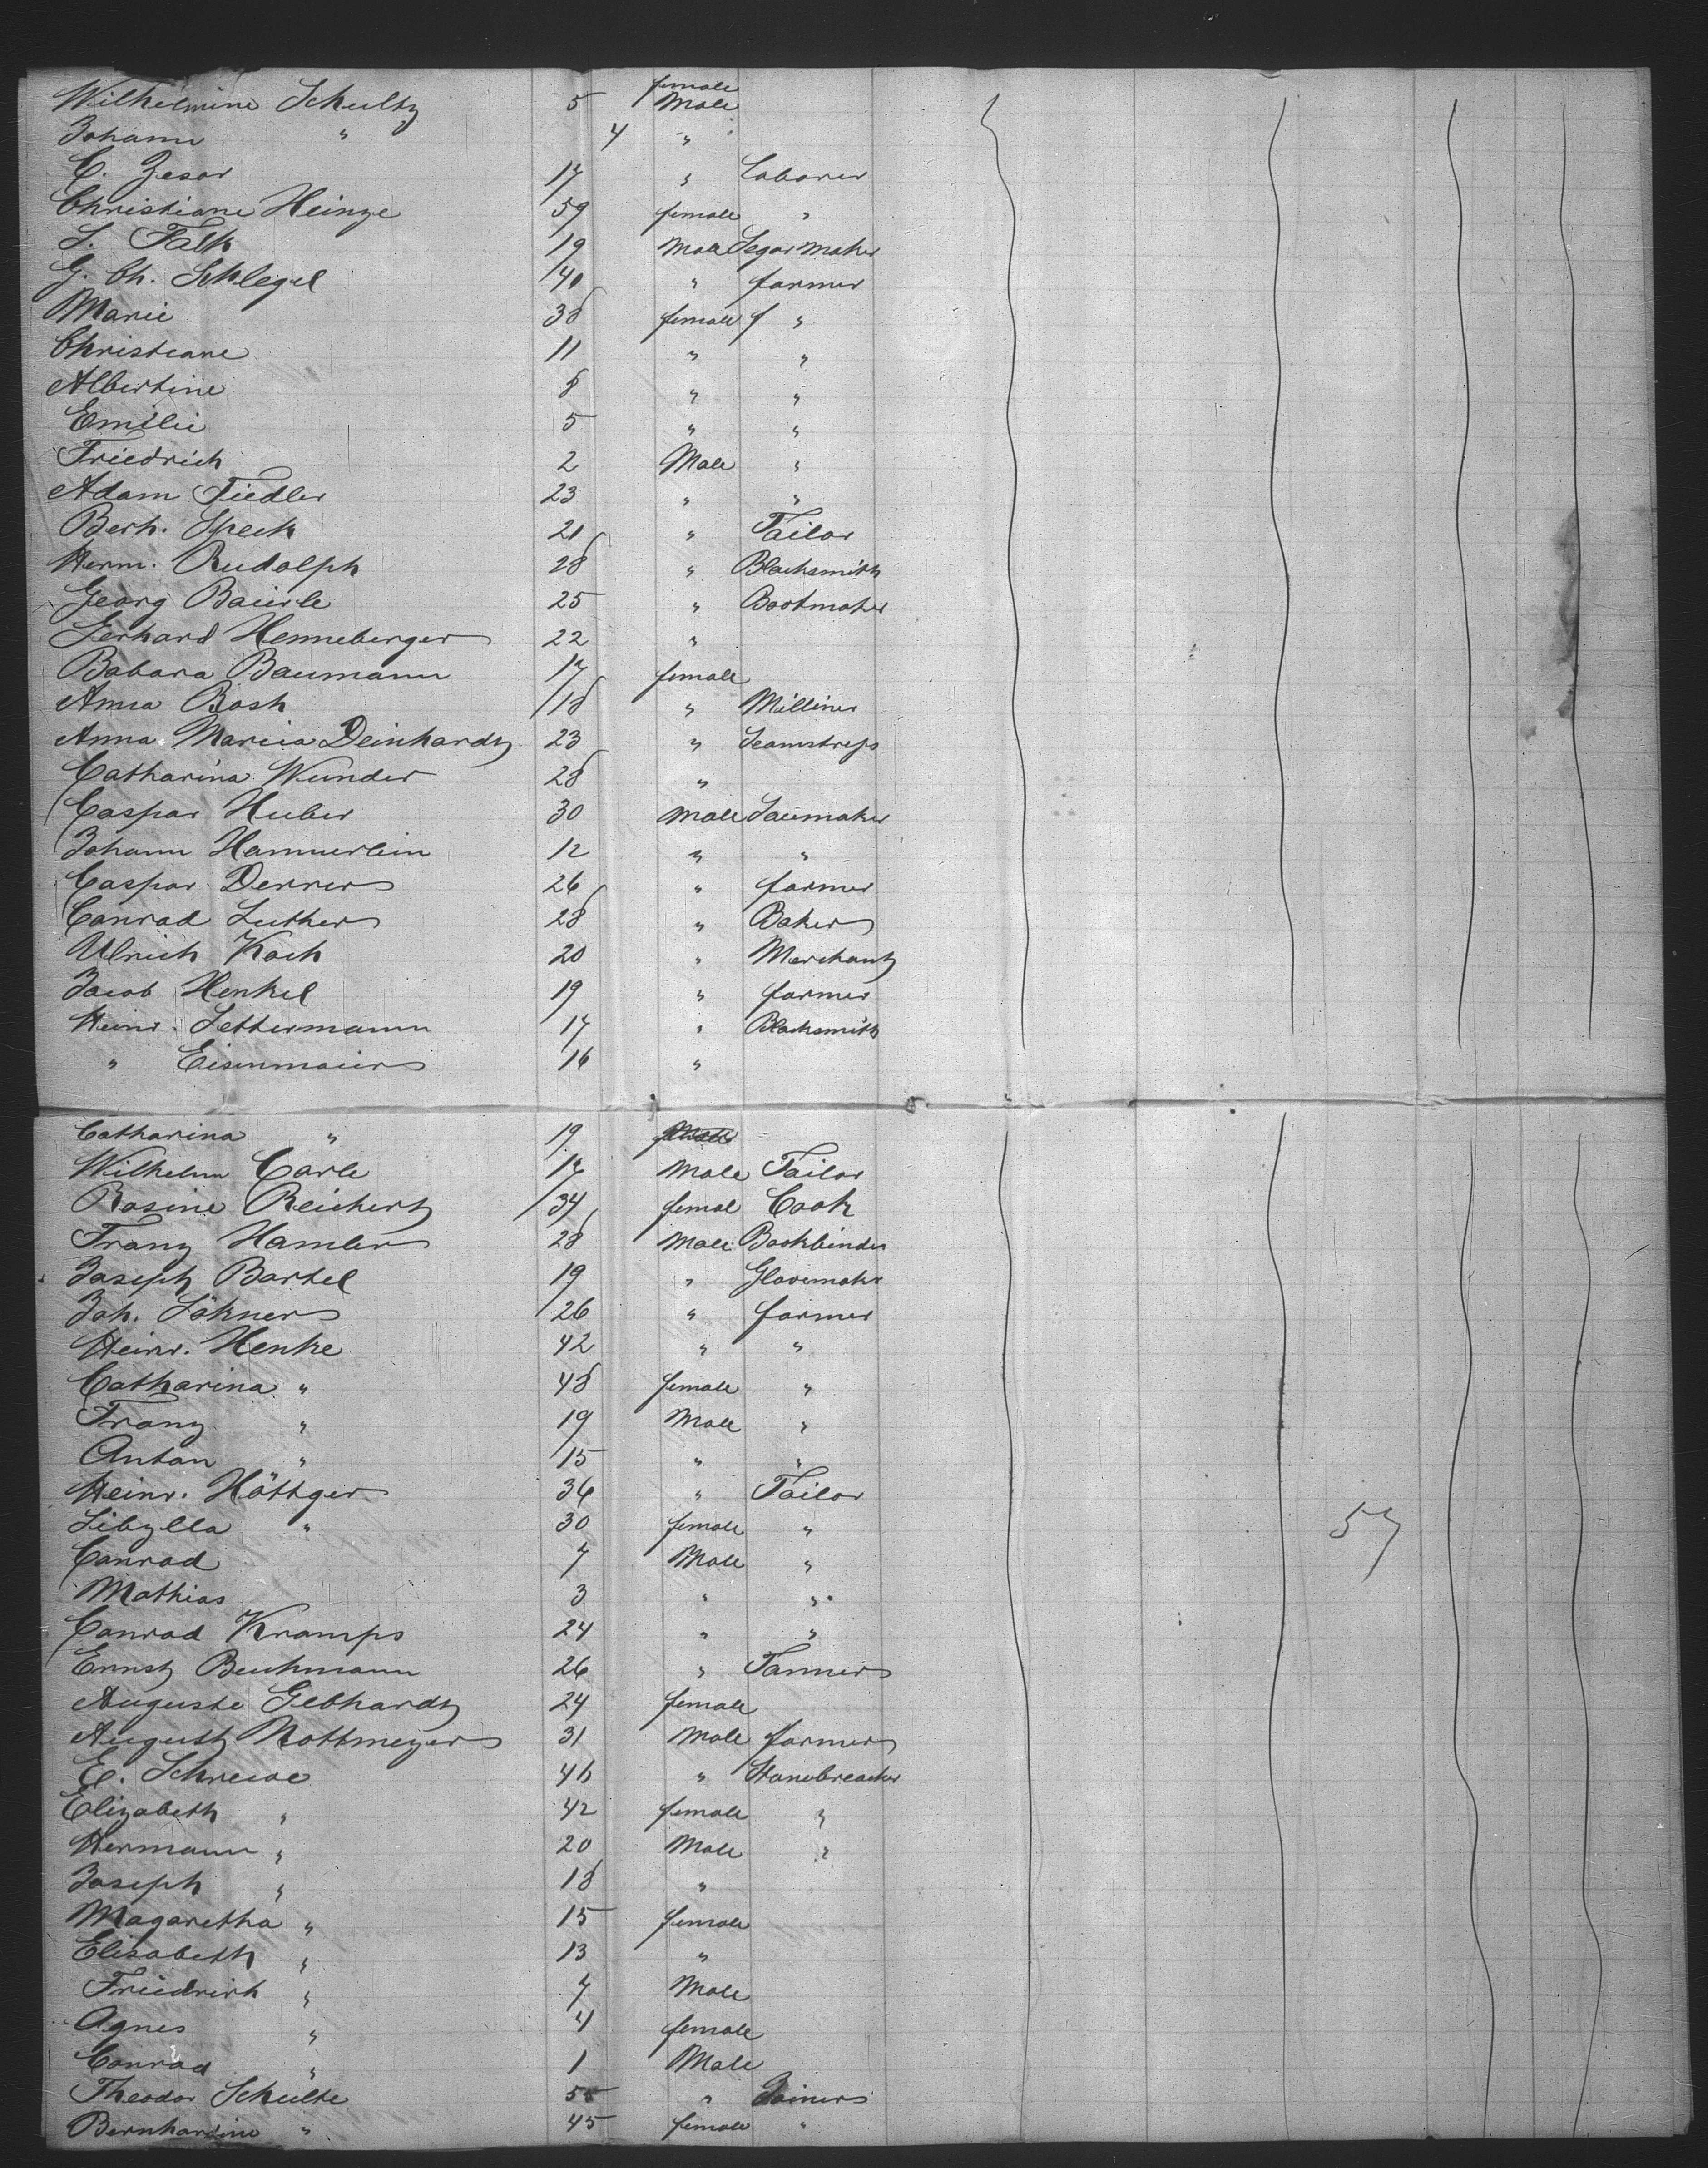 Wilhelmine Schultz 5 female Male
Johann " 4 "
C. Zesar 17 " Laborer
Christiane Heinze 59 female "
S. Falk 19 Male Segar Maker
G. Ch. Schlegel 40 " farmer
Marie 38 female f "
Christiane 11 " "
Albertine 8 " "
Emilie 5 " "
Friedrich 2 Male "
Adam Fiedler 23 " "
Berh. Speck 21 " Tailor
Herm. Rudolph 28 " Blacksmith
Georg Baürle 25 " Bootmaker
Gerhard Henneberger 22 "
Babara Baumann 17 female
Anna Bosh 18 " Milliner
Anna Maria Deinhardt 23 " Seamstress
Catharina Wunder 28 "
Caspar Huber 30 Male
Johann Hammerlein 12 " "
Caspar Derrer 26 " farmer
Conrad Luther 28 " Baker
Ulrich Koch 20 " Merchant
Jacob Henkel 19 " farmer
Heinr. Lettermann 17 " Blacksmith
" Eisenmaier 16 "
Catharina " 19
Wilhelm Carle 17 Male Tailor
Rosine Reichert 34 femal Cook
Franz Hamler 28 Male Bookbinder
Joseph Bartel 19 " Glovemaker
Joh. Lökner 26 " farmer
Heinr. Henke 42 " "
Catharina " 48 female "
Franz " 19 Male "
Anton " 15 " "
Heinr. Höttger 36 " Tailor
Sibylla " 30 female "
57
Conrad 7 Male "
Mathias 3 " "
Conrad Kramps 24 " "
Ernst Buchmann 26 " Tanner
Auguste Gebhardt 24 female
August Nottmeyer 31 Male farmer
E. Schrewe 46 " Stonebreacker
Elizabeth " 42 female "
Hermann " 20 Male "
Joseph " 18 "
Magaretha " 15 female
Elisabeth " 13 "
Friedrich " 7 Male
Agnes " 4 female
Conrad " 1 Male
Theodor Schulte 55 " Joiner
Bernhardine " 45 female "